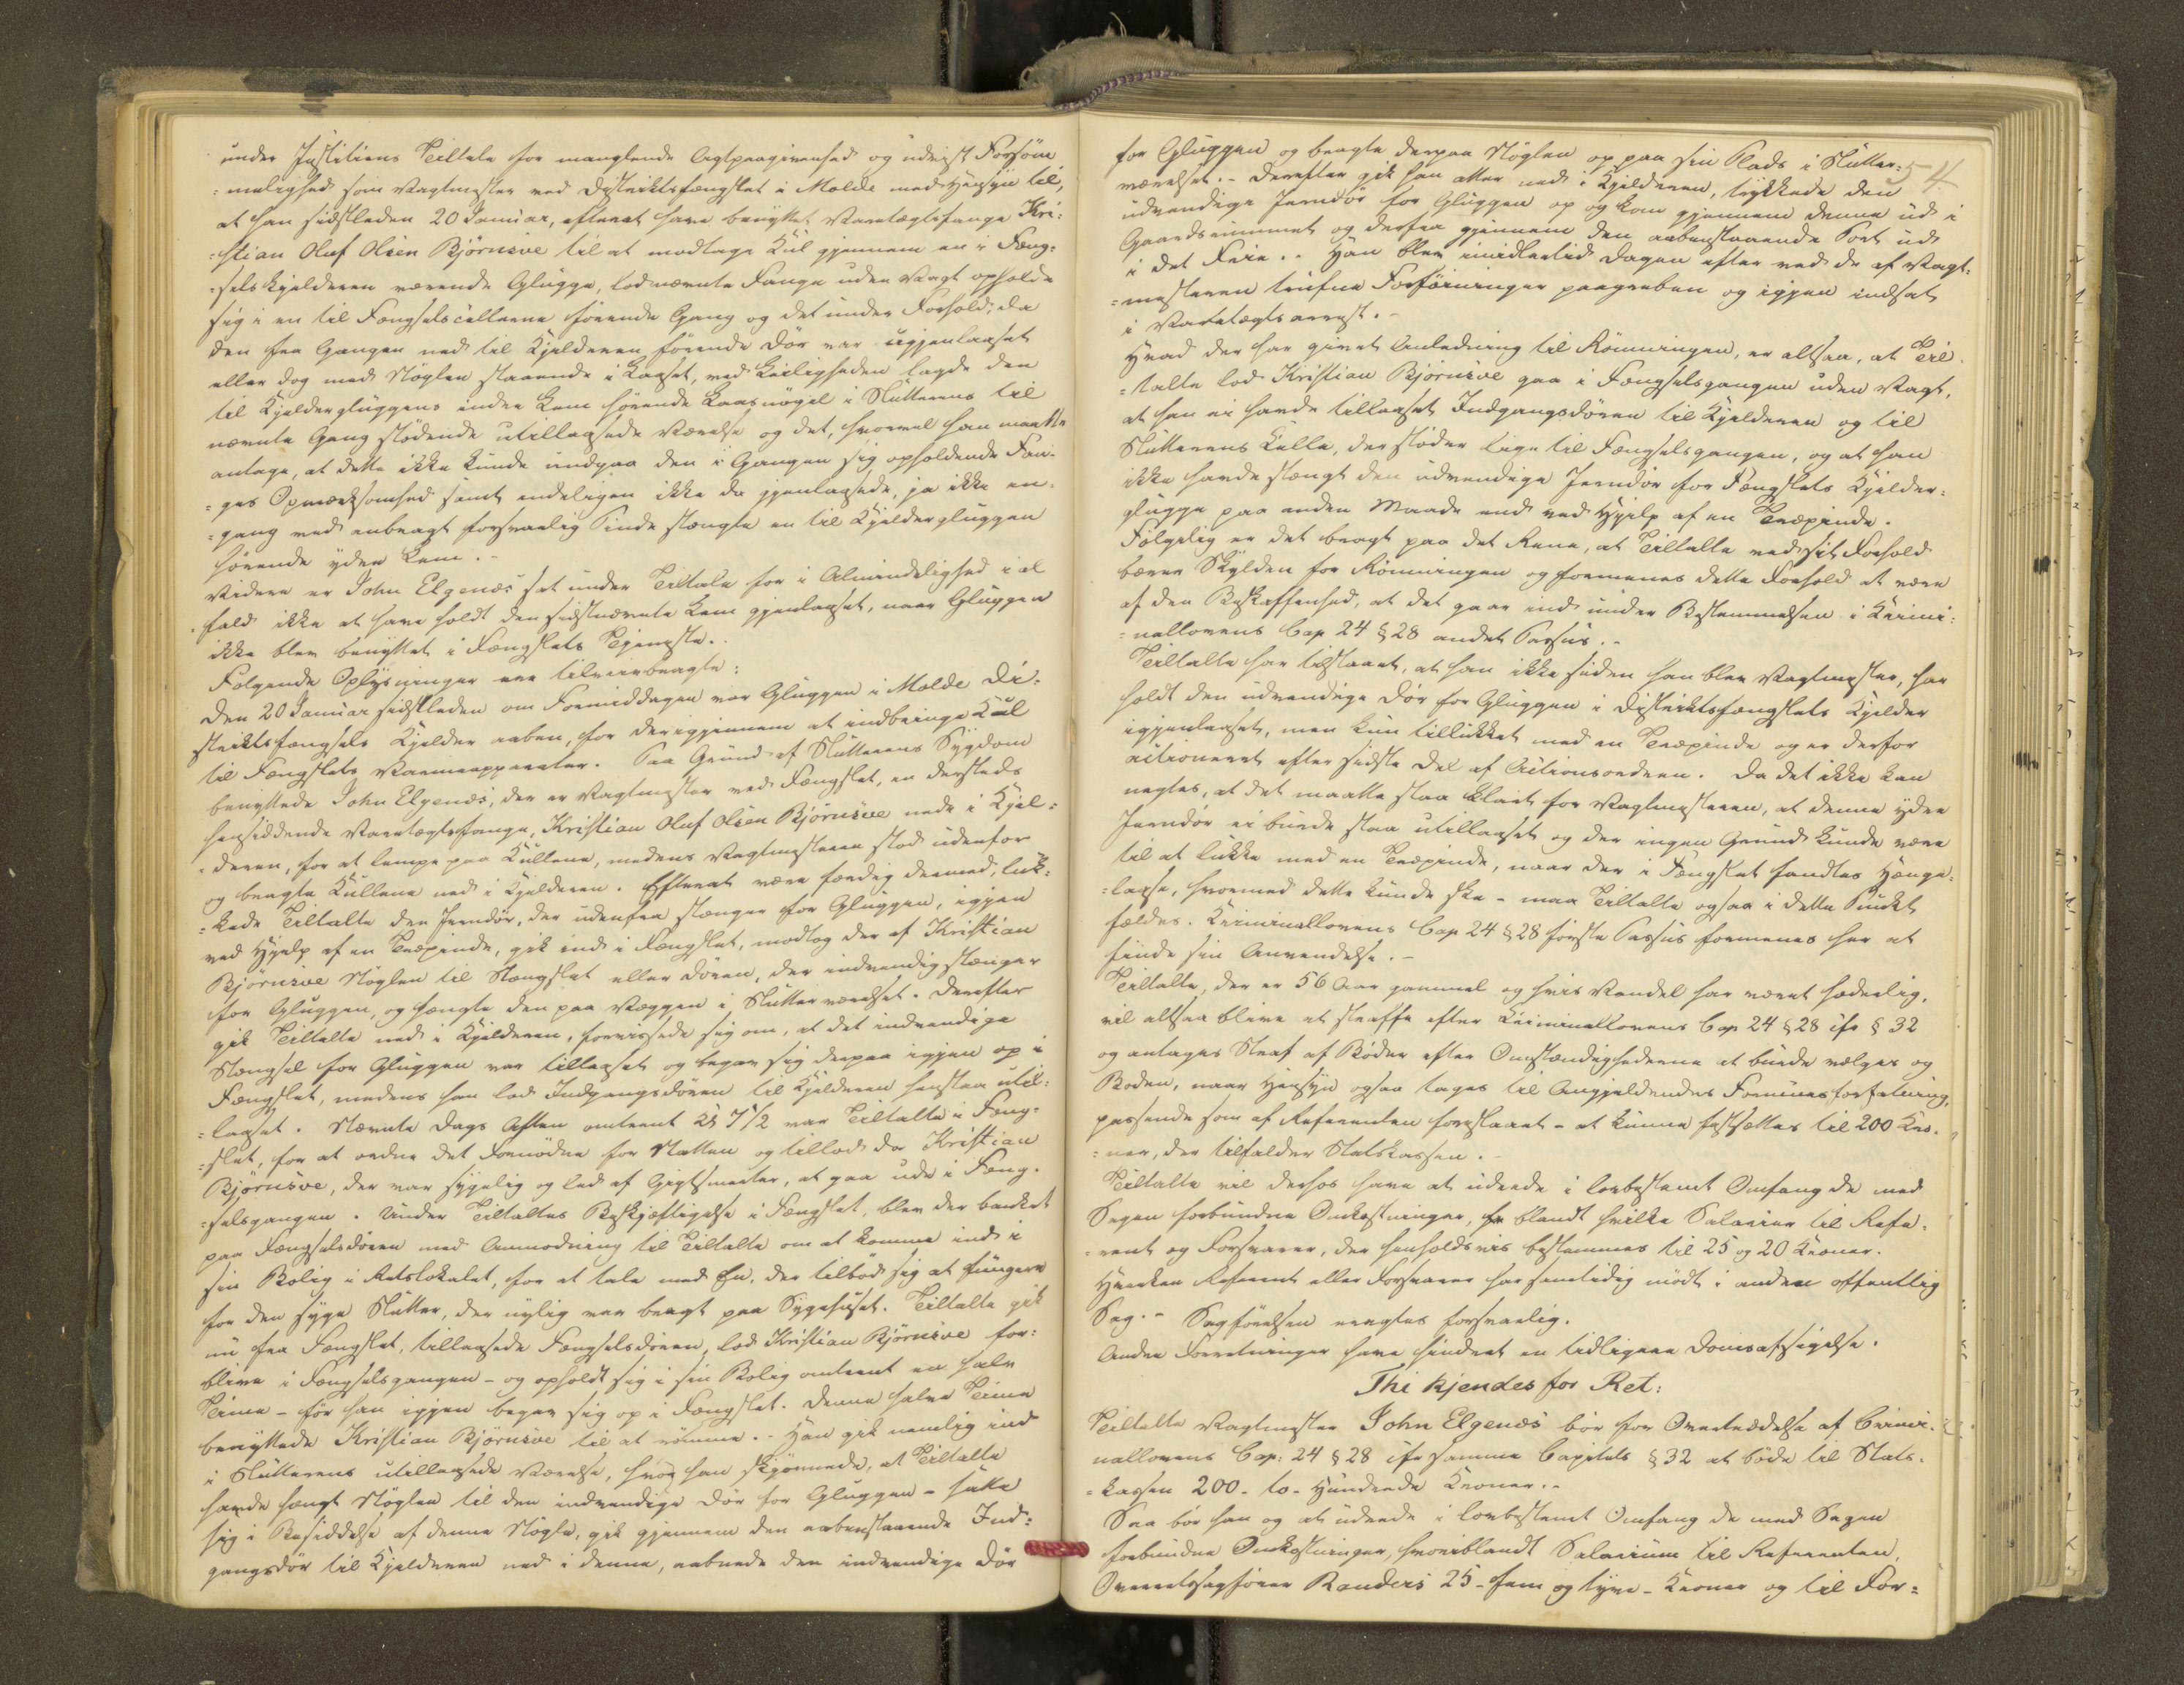 under Justitiens Tiltale for manglende Agtpaagivenhed og udvist Forsöm
=melighed som Vagtmester ved Distriktsfængslet i Molde med Hensyn til,
at han sidstleden 20 Januar, efterat have benyttet Varetægtsfange Kri=
=stian Oluf Olsen Björnsöe til at modtage Kul gjennem en i Fæng=
=selskjelderen værende Glugge, lod nævnte Fange uden Vagt opholde
sig i en til Fængselscellerne förende Gang og det under Forhold, da
den fra Gangen ned til Kjelderen förende Dör var ugjenlaaset
eller dog med Nöglen staaende i Laaset, ved Leiligheden lagde den
til Kjelderglüggens indre Lem hörende Laasnögel i Slutterens til
nævnte Gang stödende utillaasede Værelse og det, hvorvel han maatte
antage, at dette ikke kunde undgaa den i Gangen sig opholdende Fan-
=ges Opmærksomhed samt endeligen ikke da gjenlaasede, ja ikke en-
=gang med anbragt forsvarlig Pinde stængte en til Kjelderglüggen
hörende ydre Lem. -
Videre er John Elgenæs sat under Tiltale for i Almindelighed i al
fald ikke at have holdt den sidstnævnte Lem gjenlaaset, naar Glüggen
ikke blev benyttet i Fængslets Tjeneste.
Fölgende Oplysninger ere tilveiebragte:
Den 20 Januar sidstleden om Formiddagen var Glüggen i Molde Di-
striktsfængsels Kjelder aaben, for derigjennem at indbringe Kul
til Fængslets Varmeapparater. Paa Grund af Slutterens Sygdom
benyttede John Elgenæs, der er Vagtmester ved Fængslet, en dersteds
hensiddende Varetægtsfange, Kristian Oluf Olsen Björnsöe nede i Kjel=
=deren, for at lempe paa Kullene, medens Vagtmesteren stod udenfor
og bragte Kullene ned i Kjelderen. Efterat være færdig dermed, luk=
=kede Tiltalte den Jerndör, der udenfra stænger for Glüggen, igjen
ved Hjælp af en Træpinde, gik ind i Fængslet, modtog der af Kristian
Björnsöe Nöglen til Stængslet eller Dören, der indvendig stænger
for Glüggen, og hængte den paa Væggen i Slutterværelset. Derefter
gik Tiltalte ned i Kjelderen, forvissede sig om, at det indvendige
Stængsel for Glüggen var tillaaset og begav sig derpaa igjen op i
Fængslet, medens han lod Indgangsdören til Kjelderen henstaa util=
=laaset. Nævnte Dags Aften omtrent Kl 7 1/2 var Tiltalte i Fæng=
=slet, for at ordne det Fornödne for Natten og tillod da Kristian
Björnsöe, der var sygelig og led af Gigtsmerter, at gaa ude i Fæng-
=selsgangen. Under Tiltaltes Beskjæftigelse i Fængslet, blev der banket
paa Fængselsdören med Anmodning til Tiltalte om at komme ind i
sin Bolig i Retslokalet, for at tale med En, der tilböd sig at fungere
for den syge Slutter, der nylig var bragt paa Sygehuset. Tiltalte gik
nu fra Fængslet, tillaasede Fængselsdören, lod Kristian Björnsöe for=
blive i Fængselsgangen - og opholdt sig i sin Bolig omtrent en halv
Time - för han igjen begav sig op i Fængslet. Denne halve Time
benyttede Kristian Björnsöe til at römme. - Han gik nemlig ind
i Slutterens utillaasede Værelse, hvor han skjönnede, at Tiltalte
havde hængt Nöglen til den indvendige Dör for Glüggen - satte
sig i Besiddelse af denne Nögle, gik gjennem den aabenstaaende Ind=
gangsdör til Kjelderen ned i denne, aabnede den indvendige Dör
54
for Glüggen og bragte derpaa Nöglen op paa sin Plads i Slutter=
værelset. - Derefter gik han atter ned i Kjelderen, trykkede den
udvendige Jerndör for Glüggen op og kom gjennem denne ud i
Gaardsrummet og derfra gjennem den aabenstaaende Port ud
i det Frie. - Han blev imidlertid Dagen efter ved de af Vagt=
=mesteren trufne Forföininger paagreben og igjen indsat
i Varetægtsarrest. -
Hvad der har givet Anledning til Römningen, er altsaa, at Til
=talte lod Kristian Björnsöe gaa i Fængselsgangen uden Vagt,
at han ei havde tillaaset Indgangsdören til Kjelderen og til
Slutterens Celle, der stöder lige til Fængselsgangen, og at han
ikke havde stængt den udvendige Jerndör for Fængslets Kjelder=
glugge paa anden Maade end ved Hjelp af en Træpinde.
Fölgelig er det bragt paa det Rene, at Tiltalte ved sit Forhold
bærer Skylden for Römningen og formenes dette Forhold at være
af den Beskaffenhed, at det gaar ind under Bestemmelsen i Krimi=
=nallovens Cap 24 § 28 andet Passus. -
Tiltalte har tilstaaet, at han ikke siden han blev Vagtmester, har
holdt den udvendige Dör for Glüggen i Distriktsfængslets Kjelder
igjenlaaset, men kun tillukket med en Træpinde og er derfor
actioneret efter sidste Del af Actionsordren. Da det ikke kan
negtes, at det maatte staa klart for Vagtmesteren, at denne ydre
Jerndör ei burde staa utillaaset og der ingen Grund kunde være
til at lukke med en Træpinde, naar der i Fængslet fandtes Hænge=
=laase, hvormed dette kunde ske - maa Tiltalte ogsaa i dette Punkt
fældes. Kriminallovens Cap 24 § 28 förste Passus formenes her at
finde sin Anvendelse. -
Tiltalte, der er 56 Aar gammel og hvis Vandel har været hæderlig,
vil altsaa blive at straffe efter Kriminallovens Cap 24 § 28 cfr § 32
og antages Straf af Böder efter Omstændighederne at burde vælges og
Boden, naar Hensyn ogsaa tages til Angjeldendes Formuesforfatning,
passende som af Referenten foreslaaet - at kunne fastsættes til 200 Kro-
=ner, der tilfalder Statskassen. -
Tiltalte vil derhos have at udrede i lovbestemt Omfang de med
Sagen forbundne Omkostninger, hr blandt hvilke Salarier til Refe=
=rent og Forsvarer, der henholdsvis bestemmes til 25 og 20 Kroner.
Hverken Referent eller Forsvarer har samtidig mödt i anden offentlig
Sag. - Sagförelsen eragtes forsvarlig.
Andre Forretninger have hindret en tidligere Domsafsigelse.
Thi kjendes for Ret:
Tiltalte Vagtmester John Elgenæs bör for Overtrædelse af Crimi-
nallovens Cap: 24 § 28 cfr samme Capitels § 32 at böde til Stats-
=kassen 200 - to - Hundrede Kroner. -
Saa bör han og at udrede i lovbestemt Omfang de med Sagen
forbundne Omkostninger, hvoriblandt Salarium til Referenten,
Overretssagförer Randers 25 - fem og tyve - Kroner og til For=